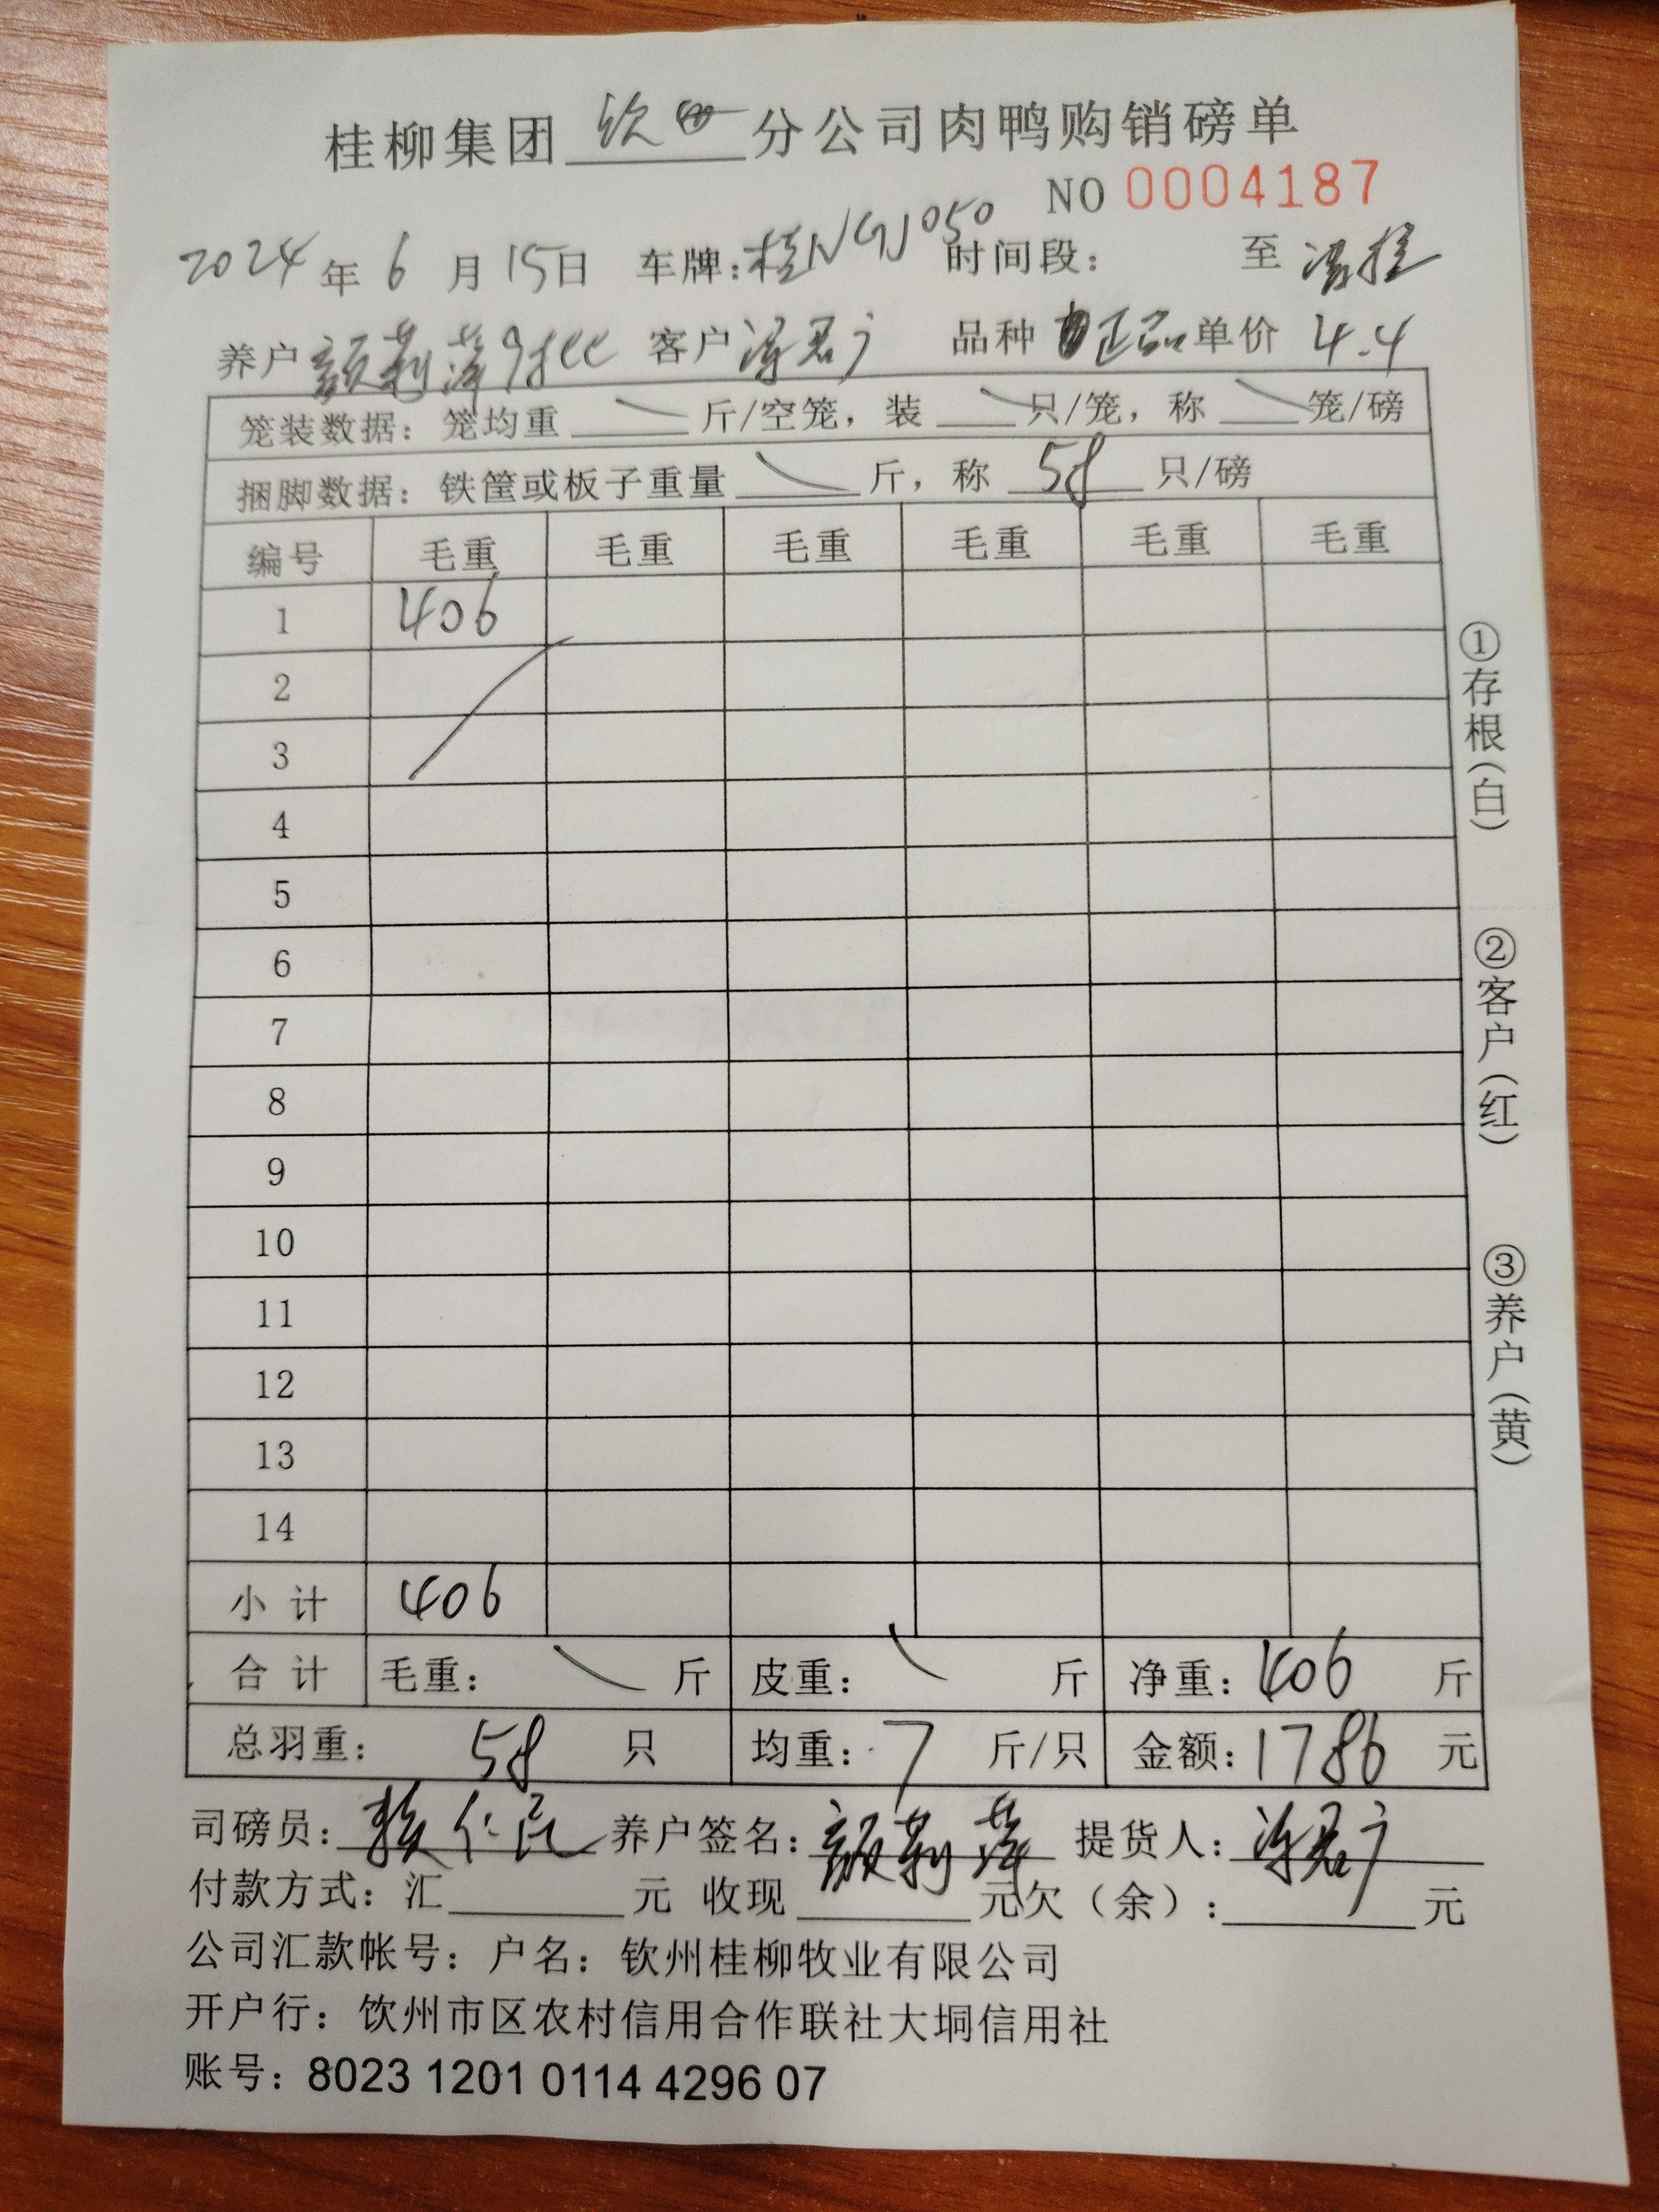 桂柳集团 钦州 分公司肉鸭购销磅单
NO 0004187
2024年6月15日 车牌:桂NGJ050 时间段: 至
养户 颜莉萍 客户 君广 品种 正品 单价 4.4
笼装数据: 笼均重 斤/空笼, 装 只/笼, 称 笼/磅
捆脚数据: 铁筐或板子重量 斤, 称 58 只/磅
编号 毛重 毛重 毛重 毛重 毛重 毛重
1 406
2
3
4
5
6
7
8
9
10
11
12
13
14
小计 406
合计 毛重: 斤 皮重: 斤 净重: 406 斤
总羽重: 58 只 均重: 7 斤/只 金额: 1786 元
司磅员: 赖仁民 养户签名: 颜莉萍 提货人: 君广
付款方式: 汇 元 收现 元欠(余): 元
公司汇款帐号: 户名: 钦州桂柳牧业有限公司
开户行: 钦州市区农村信用合作联社大垌信用社
账号: 8023 1201 0114 4296 07
①存根(白)
②客户(红)
③养户(黄)